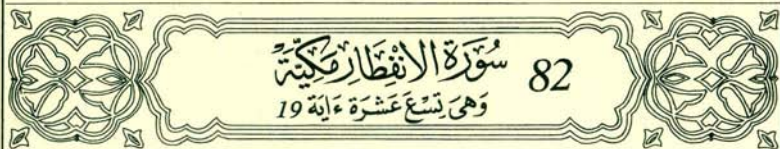 سُورَةُ الِانفِطَارِ مَكِّيَّةٌ 82
وَهِيَ تِسْعَ عَشْرَةَ ءَايَةً 19